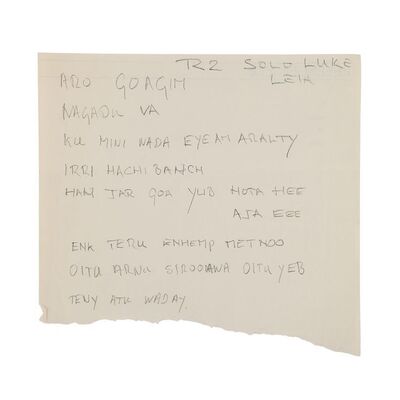 R2 SOLO LUKE
LEIA
ARO GOAGIM
NAGADU VA
KU MINI WADA EYE AM ARALTY
IRRI HACHI BANCH
HAM JAR GOA YUB HOTA HEE
AJA EEE
ENK TERU ENHEMP METNOO
OITU ARNU SIROOAWA OITU YEB
TENY ATU WADAY.